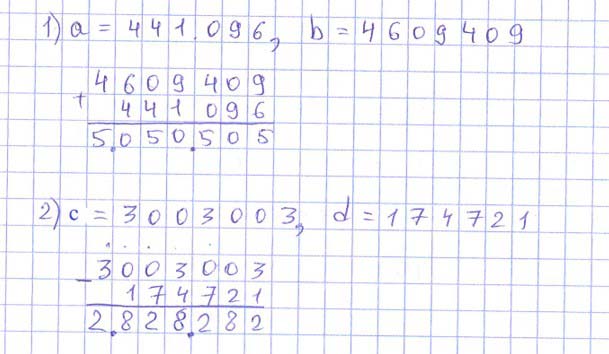 1) a = 441.096, b = 4609409
4609409
+ 441096
5.050.505
2) c = 3003003, d = 174721
. . . .
- 3003003
174721
2.828.282